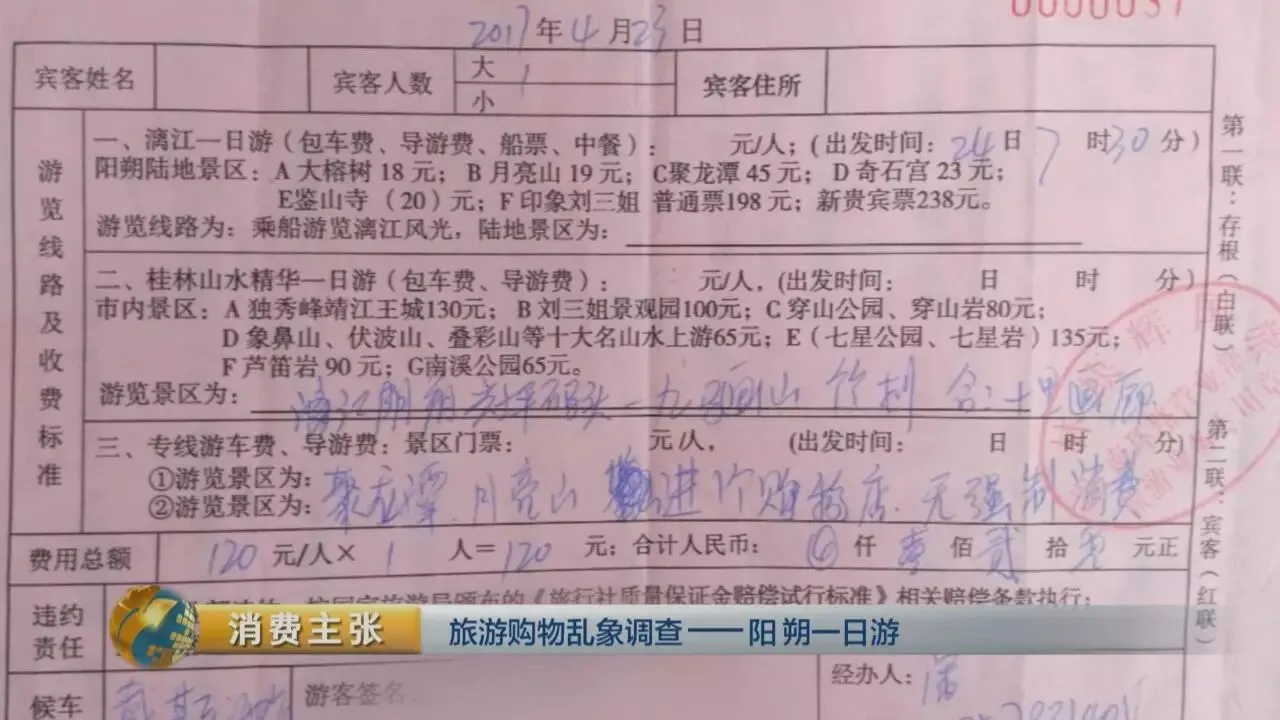 0000037
2017年4月23日
宾客姓名 宾客人数 大 1 小 宾客住所
游览线路及收费标准
一、漓江一日游（包车费、导游费、船票、中餐）： 元/人；（出发时间：24日7时30分）
阳朔陆地景区：A大榕树18元；B月亮山19元；C聚龙潭45元；D奇石宫23元；
E鉴山寺（20）元；F印象刘三姐 普通票198元；新贵宾票238元。
游览线路为：乘船游览漓江风光，陆地景区为：
二、桂林山水精华一日游（包车费、导游费）： 元/人，（出发时间： 日 时 分）
市内景区：A独秀峰靖江王城130元；B刘三姐景观园100元；C穿山公园、穿山岩80元；
D象鼻山、伏波山、叠彩山等十大名山水上游65元；E（七星公园、七星岩）135元；
F芦笛岩90元；G南溪公园65元。
游览景区为： 漓江 码头—九 画山 竹 十里画廊
三、专线游车费、导游费：景区门票： 元/人， （出发时间： 日 时 分）
①游览景区为：聚龙潭.月亮山 进1个购物店.无强制消费
②游览景区为：
费用总额 120元/人×1人=120元；合计人民币： 仟壹佰贰拾 元正
违约责任 按国家旅游局颁布的《旅行社质量保证金赔偿试行标准》相关赔偿条款执行；
候车 游客签名 经办人：
第一联：存根（白联） 第二联：宾客（红联）
消费主张 旅游购物乱象调查——阳朔一日游